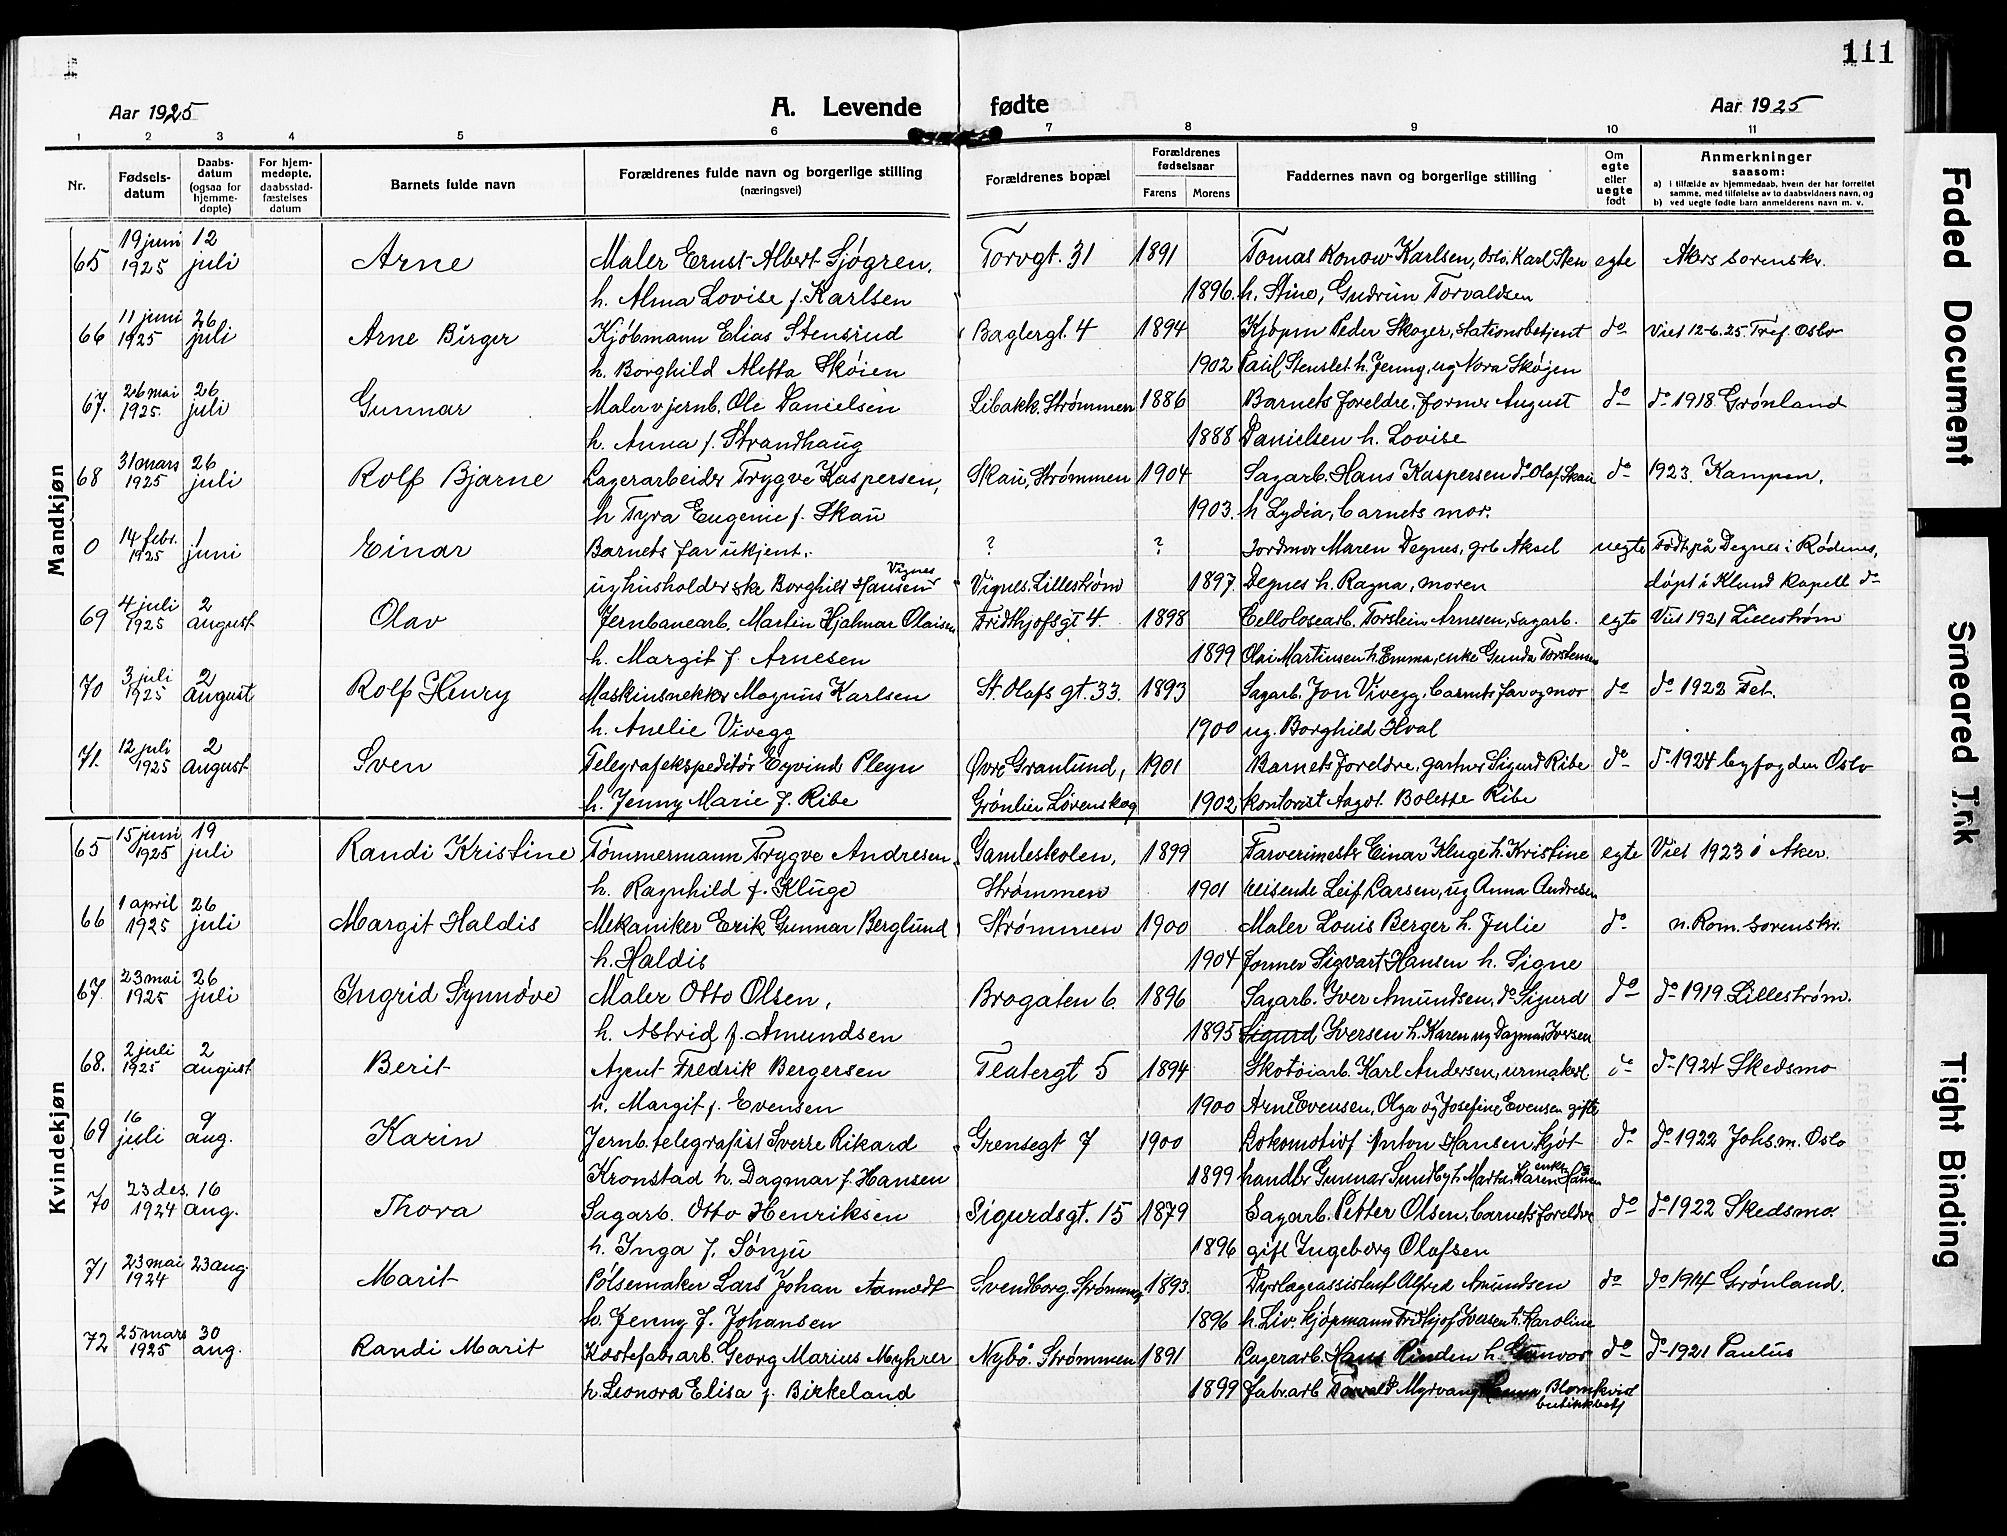 111
Aar 1925
A. Levende fødte
Aar 1925
1 2 3 4 5 6 7 8 9 10 11
Nr.
Fødsels-
datum
Daabs-
datum
(ogsaa for
hjemme-
døpte)
For hjem-
medøpte,
daabsstad-
fæstelses
datum
Barnets fulde navn
Forældrenes fulde navn og borgerlige stilling
(næringsvei)
Forældrenes bopæl
Forældrenes
fødselsaar
Farens Morens
Faddernes navn og borgerlige stilling
Om
egte
eller
uegte
født
Anmerkninger
saasom:
a) i tilfælde av hjemmedaab, hvem der har forrettet
samme, med tilføielse av to daabsvidners navn, og
b) ved uegte fødte barn anmelderens navn m. v.
Mandkjøn
65 19 juni 1925 12 juli Arne Maler Ernst Albert Sjøgren, Torvgt. 31 1891 Tomas Konow Karlsen, Oslo, Karl Sten egte Akers sorenskr.
h. Alma Lovise f. Karlsen 1896. h. Stine, Gudrun Torvaldsen
66 11 juni 1925 26 juli Arne Birger Kjøbmann Elias Stensrud Baglergt. 4 1894 Kjøpm Peder Skoger, stationsbetjent do Viet 12-6.25 Tref. Oslo
h. Borghild Aletta Skøien 1902 Paul Stenslet h. Jenny, ug Nora Skøjen
67. 26 mai 1925. 26 juli Gunnar Maler v jernb. Ole Danielsen Libakk. Strømmen 1886 Barnets foreldre, former August do do 1918 Grønland
h. Anna f. Strandhaug 1888 Danielsen h. Lovise
68 31 mars 1925 26 juli Rolf Bjarne Lagerarbeider Trygve Kaspersen, Skau, Strømmen 1904 Sagarb. Hans Kaspersen do Olaf Skau do 1923. Kampen,
h Tyra Eugenie f. Skau 1903. h Lydia, barnets mor.
0 14 febr. 1925 1 juni Einar Barnets far ukjent. ? ? Jordmor Maren Degnes, grb Aksel uegte Født på Degnes i Rødenes,
ug husholderske Borghild Hansen Vignes Vignes. Lillestrøm 1897. Degnes h. Ragna, moren døpt i Klund kapell do
69 4 juli 1925 2 august Olav Jernbanearb. Martin Hjalmar Olaisen Fridthjofsgt 4 1898 Cellolosearb. Torstein Arnesen, sagarb. egte Viet 1921 Lillestrøm
h. Margit f. Arnesen 1899 Olai Martinsen h. Emma, enke Gunda Torstensen
70 3 juli 1925 2 august Rolf Henry Maskinsnekker Magnus Karlsen St. Olafs gt. 33. 1893 Sagarb. Jon Vivegg, barnets far og mor do do 1922 Fet.
h. Amelie Vivegg 1900 ug. Borghild Hval
71. 12 juli 1925 2 august Sven Telegrafekspeditør Eyvind Pleyn Øvre Granlund, 1901 Barnets foreldre, gartner Sigurd Ribe do do 1924 byfogden Oslo
h. Jenny Marie f. Ribe Grønlien Lørenskog 1902 kontorist Aagot Bolette Ribe
Kvindekjøn
65 15 juni 1925 19 juli Randi Kristine Tømmermann Trygve Andresen Gamleskolen, 1899 Farverimestr Einar Kluge h. Kristine egte Viet 1923 i Aker.
h. Ragnhild f. Kluge Strømmen 1901 reisende Leif Larsen, ug Anna Andresen
66 1 april 1925 26 juli Margit Haldis Mekaniker Erik Gunnar Berglund Strømmen 1900 Maler Louis Berger h. Julie do n. Rom. sorenskr.
h. Haldis 1904 former Sigvart Hansen h. Signe
67. 23 mai 1925 26 juli Ingrid Synnøve Maler Otto Olsen, Brogaten 6. 1896 Sagarb. Iver Amundsen, do Sigurd do do 1919. Lillestrøm.
h. Astrid f. Amundsen 1895 Sigurd Iversen h. Karen ug Dagmar Iversen
68. 2 juli 1925 2 august Berit Agent Fredrik Bergersen Teatergt 5 1894 Skotøiarb. Karl Andersen, urmaker do do 1924 Skedsmo
h. Margit f. Evensen 1900 Arne Evensen, Olga og Josefine Evensen gifte
69 16 juli 9 aug. Karin Jernb. telegrafist Sverre Rikard Grensegt 7 1900 Lokomotivf Anton Hansen kjøt do do 1922 Johs.m. Oslo
Kronstad h. Dagmar f. Hansen 1899 handler Gunnar Sundby h. Marta, enke Karen Hansen
70 23 des. 1924 16 aug. Thora Sagarb. Otto Henriksen Sigurdsgt. 15 1879 Sagarb. Petter Olsen, barnets foreldre do do 1922 Skedsmo.
h. Inga f. Sønju 1896 gift Ingeborg Olafsen
71 23 mai 1924 23 aug Marit Pølsemaker Lars Johan Aamodt Svendborg Strømmen 1893. Dyrlægeassistent Alfred Amundsen do do 1914 Grønland.
h. Jenny f. Johansen 1896 h. Liv. kjøpmann Fridthjof Iversen h. Karoline
72 25 mars 1925 30 aug. Randi Marit Kostefabr.arb. Georg Marius Myhrer Nybø. Strømmen 1891 Lagerarb. Hans Rinden h. Gunvor do do 1921 Paulus
h. Leonora Elisa f. Birkeland 1899 fabr.arb Torvald Myrvang Blomkvist
Faded Document
Smeared Ink
Tight Binding